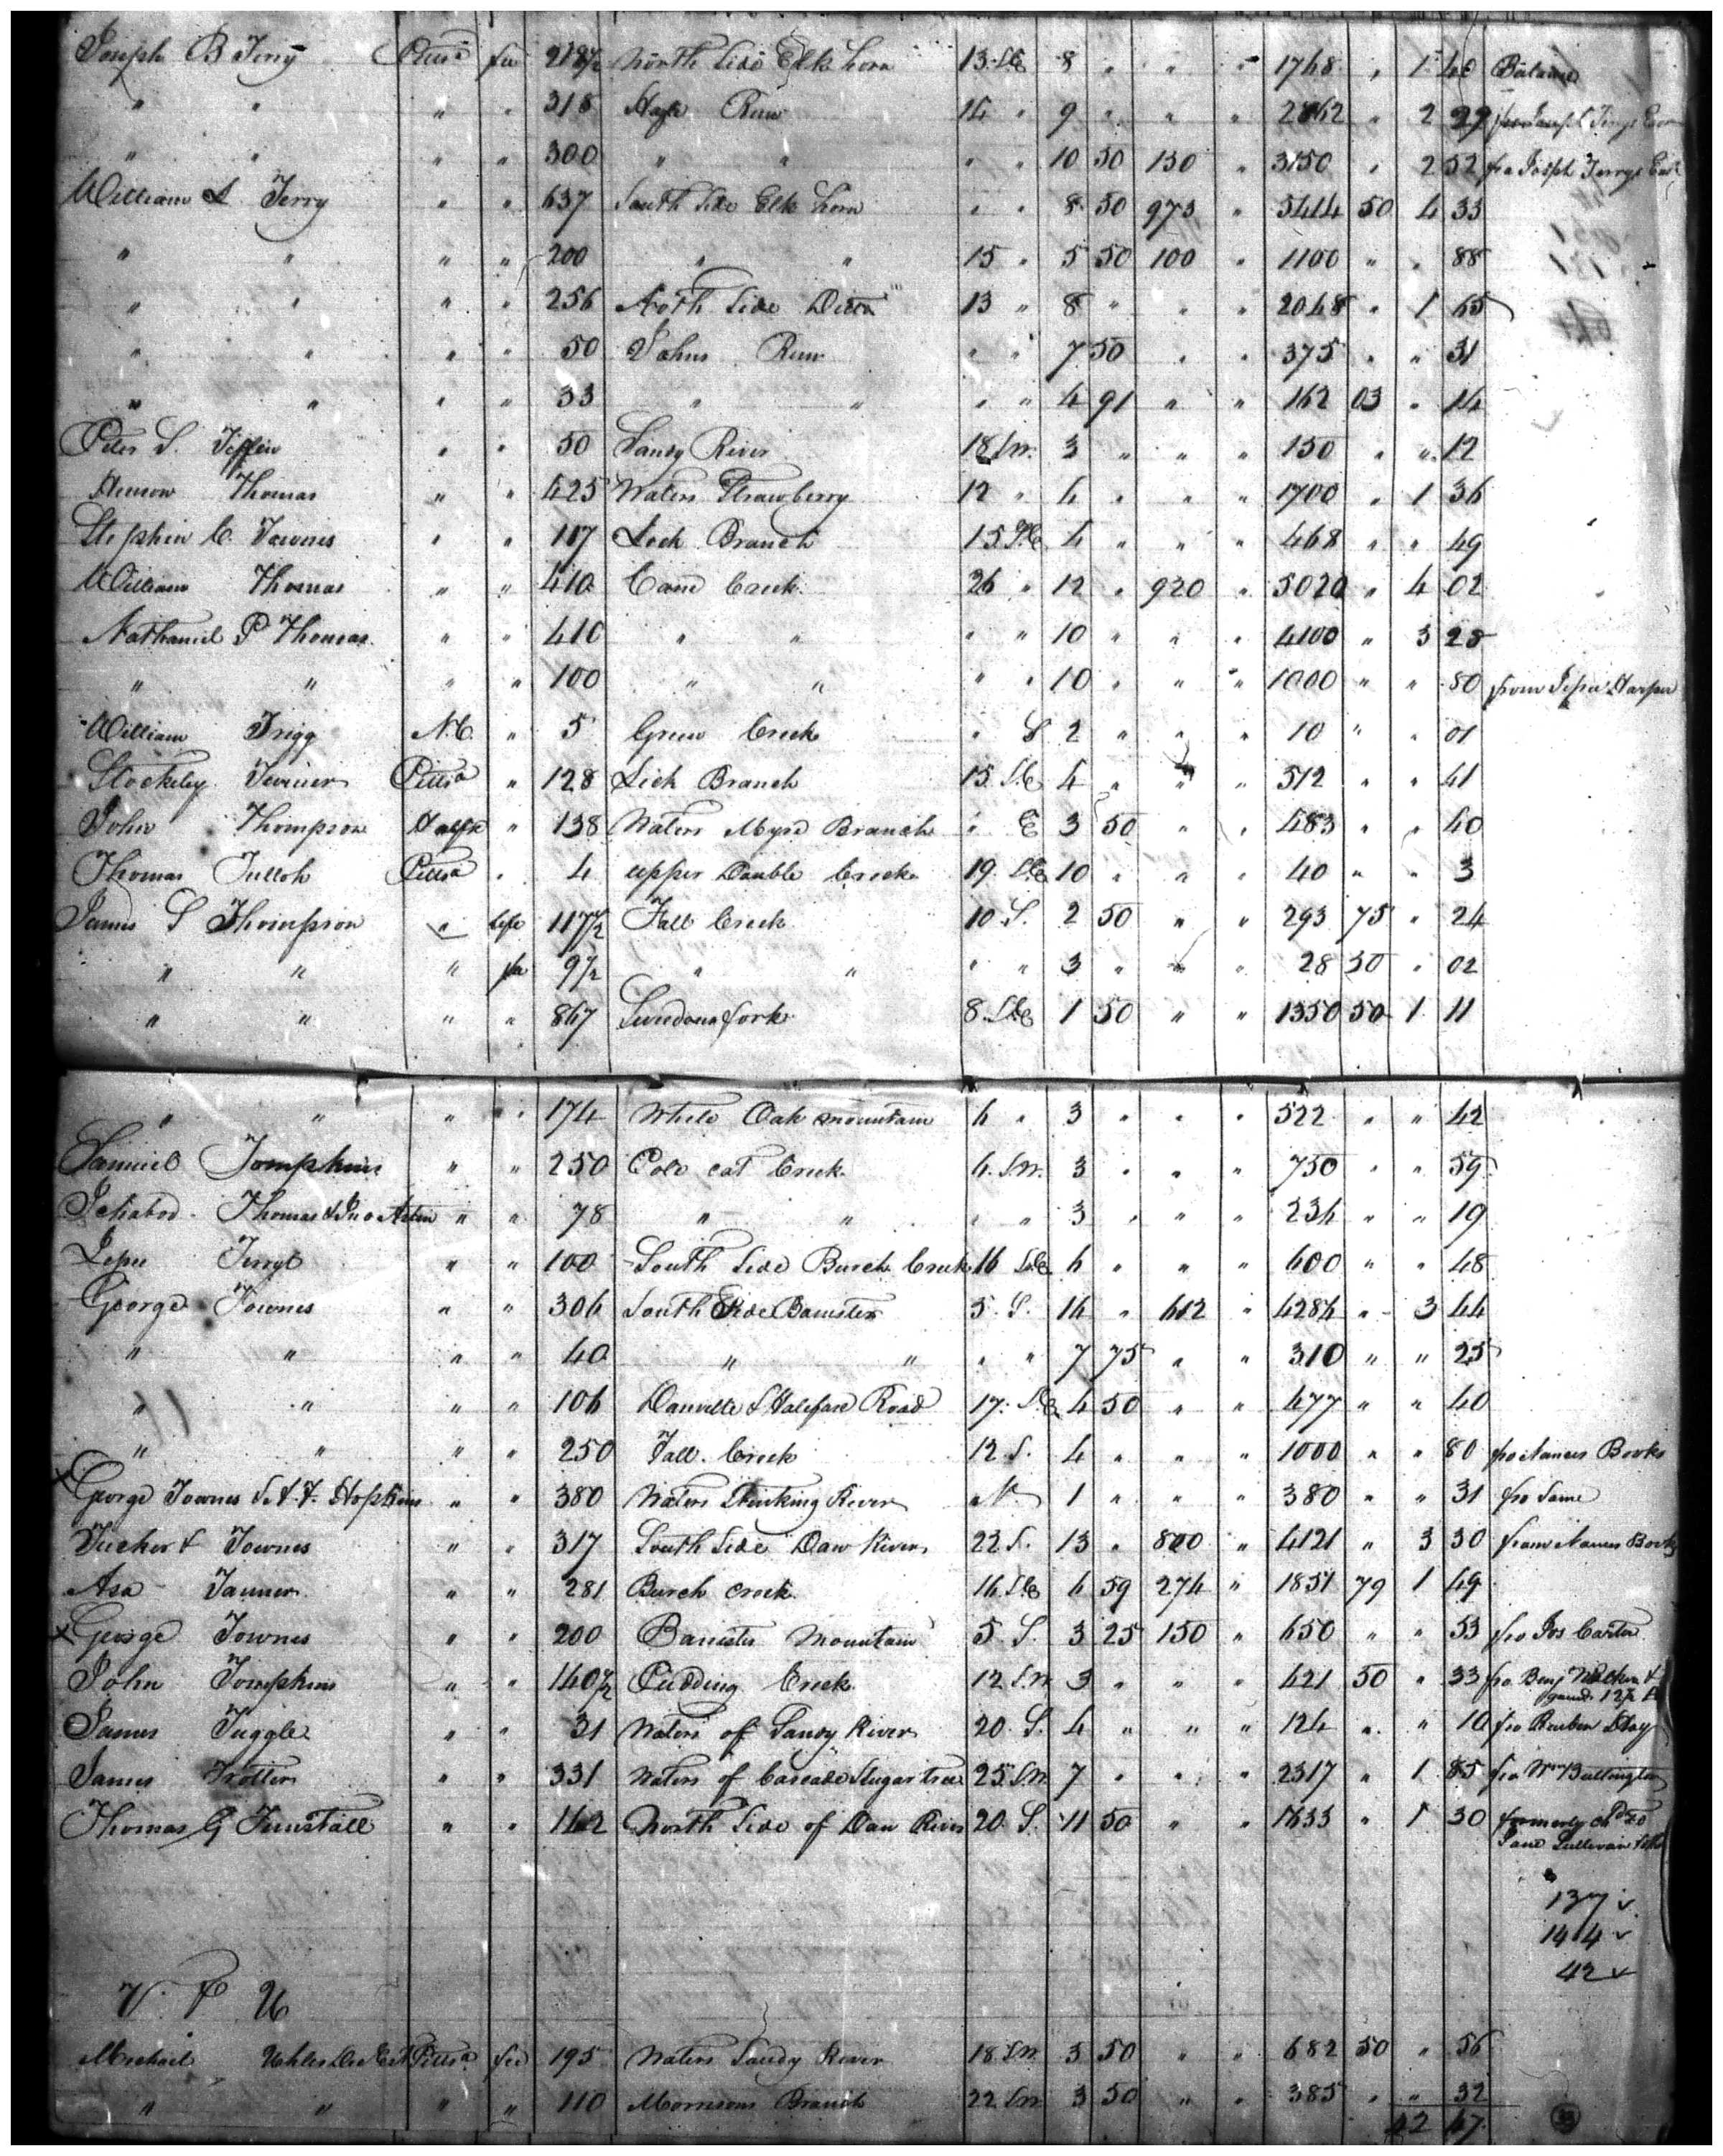 Joseph B Terry Pittsa fee North Side Elk horn 13 S.E 8 " " " 1768 " 1 40 Balance
" " " " 318 Run 14 " 9 " " " 2862 " 2 29 Joseph Terrys
" " " " 300 " " " " 10 50 150 " 3150 " 2 52 fro Joseph Terrys Est
William L Terry " " 637 South Side Elk horn " " 8 50 973 " 5414 50 4 33
" " " " 200 " " 15 " 5 50 100 " 1100 " " 88
" " " " 256 North Side Ditto 13 " 8 " " " 2048 " 1 65
" " " " 50 Johns Run " " 7 50 " " 375 " " 31
" " " " 33 " " " " 4 91 " " 162 03 " 14
Peter S. " " 50 Sandy River 18 S.W. 3 " " " 150 " " 12
Thomas " " 425 Waters Strawberry 12 " 4 " " " 1700 " 1 36
Stephen C. Townes " " 117 Branch 15 S.E 4 " " " 468 " " 49
William Thomas " " 410 Cane Creek 26 " 12 " 920 " 5020 " 4 02
Nathaniel P Thomas " " 410 " " " " 10 " " " 4100 " 3 28
" " " " 100 " " " " 10 " " " 1000 " " 80 from Harper
William Trigg N.C. " 5 Green Creek " S 2 " " " 10 " " 01
Stockeley Turner Pittsa " 128 Lick Branch 15 S.E 4 " " " 512 " " 41
John Thompson Halfx " 138 Waters Myre Branch " E 3 50 " " 483 " " 40
Thomas Tulloh Pittsa " 4 upper Double Creek 19 S.E 10 " " " 40 " " 3
James S Thompson " life 117½ Fall Creek 10 S. 2 50 " " 293 75 " 24
" " " fee 9½ " " " " 3 " " " 28 50 " 02
" " " " 867 fork 8 S.E 1 50 " " 1350 50 1 11
" " " " 174 White Oak mountain 6 " 3 " " " 522 " " 42
Samuel Tompkins " " 250 Pole cat Creek 4 S.W. 3 " " " 750 " " 59
Ichabod Thomas & Jno " " 78 " " " " 3 " " " 234 " " 19
Terry " " 100 South Side Burch Creek 16 S.E. 6 " " " 600 " " 48
George Townes " " 306 South Side Banister 5 S. 14 " 612 " 4284 " 3 44
" " " " 40 " " " " 7 75 " " 310 " " 25
" " " " 106 Danville & Halifax Road 17 S.E. 4 50 " " 477 " " 40
" " " " 250 Fall Creek 12 S. 4 " " " 1000 " " 80 fro Nances Books
George Townes & Hopkins " " 380 Waters Stinking River " N. 1 " " " 380 " " 31 fro Same
Tucker & Townes " " 317 South Side Dan River 22 S. 13 " 800 " 4121 " 3 30 from Nances Books
Asa Tanner " " 281 Burch creek 16 S.E 6 59 274 " 1851 79 1 49
George Townes " " 200 Banister Mountain 5 S. 3 25 150 " 650 " " 53 fro Jos Carter
John Tompkins " " 140½ Pudding Creek 12 S.W 3 " " " 421 50 " 33 fro Benj &
12½
James Tuggle " " 31 Waters of Sandy River 20 S. 4 " " " 124 " " 10 fro Reuben
James Trotter " " 331 Waters of Cascade & Sugar tree 25 S.W. 7 " " " 2317 " 1 85 fro Wm Bullington
Thomas G Tunstall " " 142 North Side of Dan River 20 S. 11 50 " " 1633 " 1 30 formerly chd to
Jane Sullivan
137
144
42
V. & U
Michael Pittsa fee 195 Waters Sandy River 18 S.W 3 50 " " 682 50 " 56
" " " " 110 Morrisons Branch 22 S.W 3 50 " " 385 " " 32
42 47